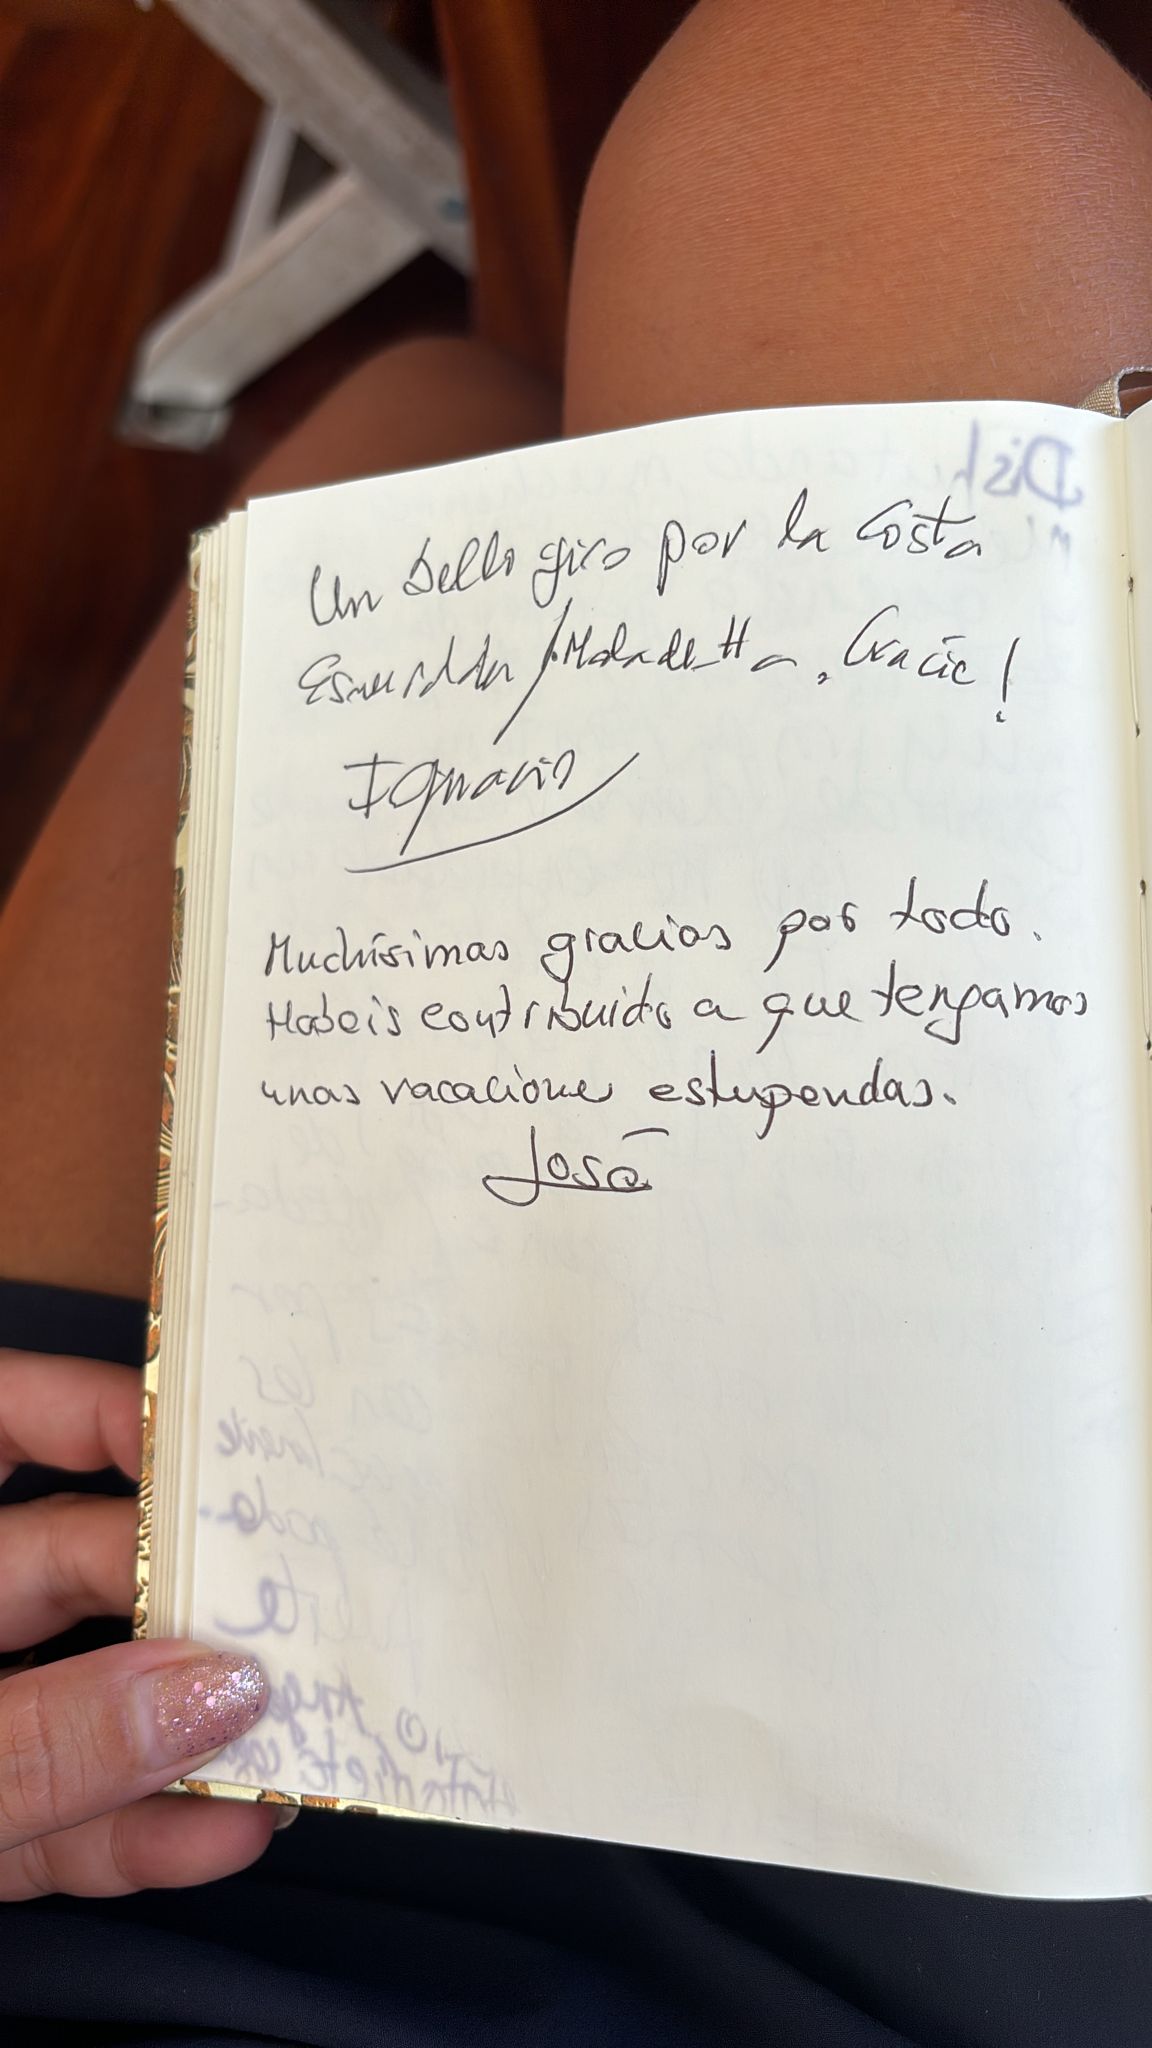 Un bello giro por la Costa
Esmeralda / Maladetta, Gracie!
Ignacio
Muchísimas gracias por todo.
Habeis contribuido a que tengamos
unas vacaciones estupendas.
José